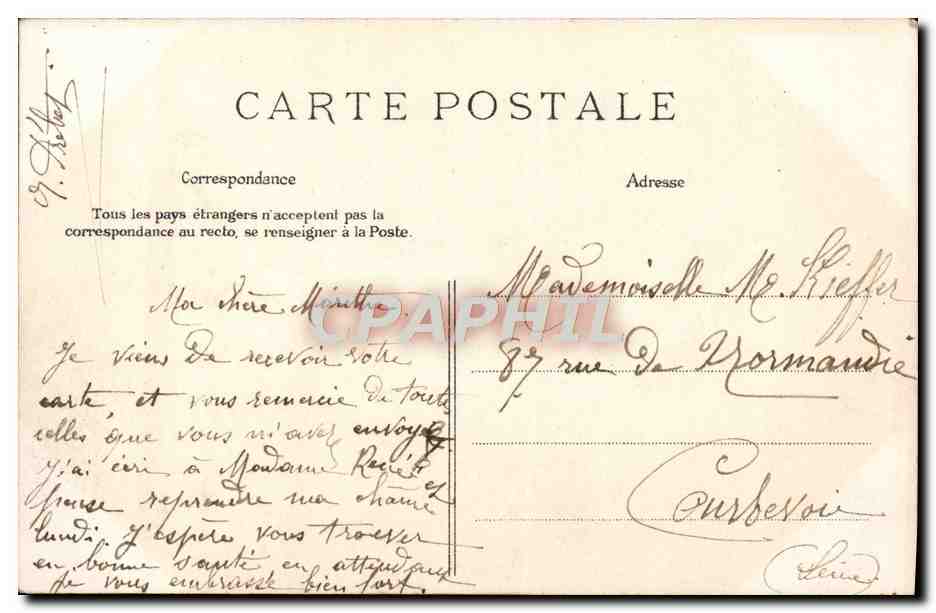 CARTE POSTALE
Correspondance
Tous les pays étrangers n'acceptent pas la
correspondance au recto, se renseigner à la Poste.
Ma chère
Je viens de recevoir votre
carte, et vous remercie de toutes
celles que vous m'avez envoyé
J'ai écri à Madame René et
pense reprendre ma
lundi. J'espère vous trouver
en bonne santé en attendant
Je vous embrasse bien fort.
Adresse
Mademoiselle M. Kieffer
87 rue de Normandie
Courbevoie
(Seine)
CPAPHIL